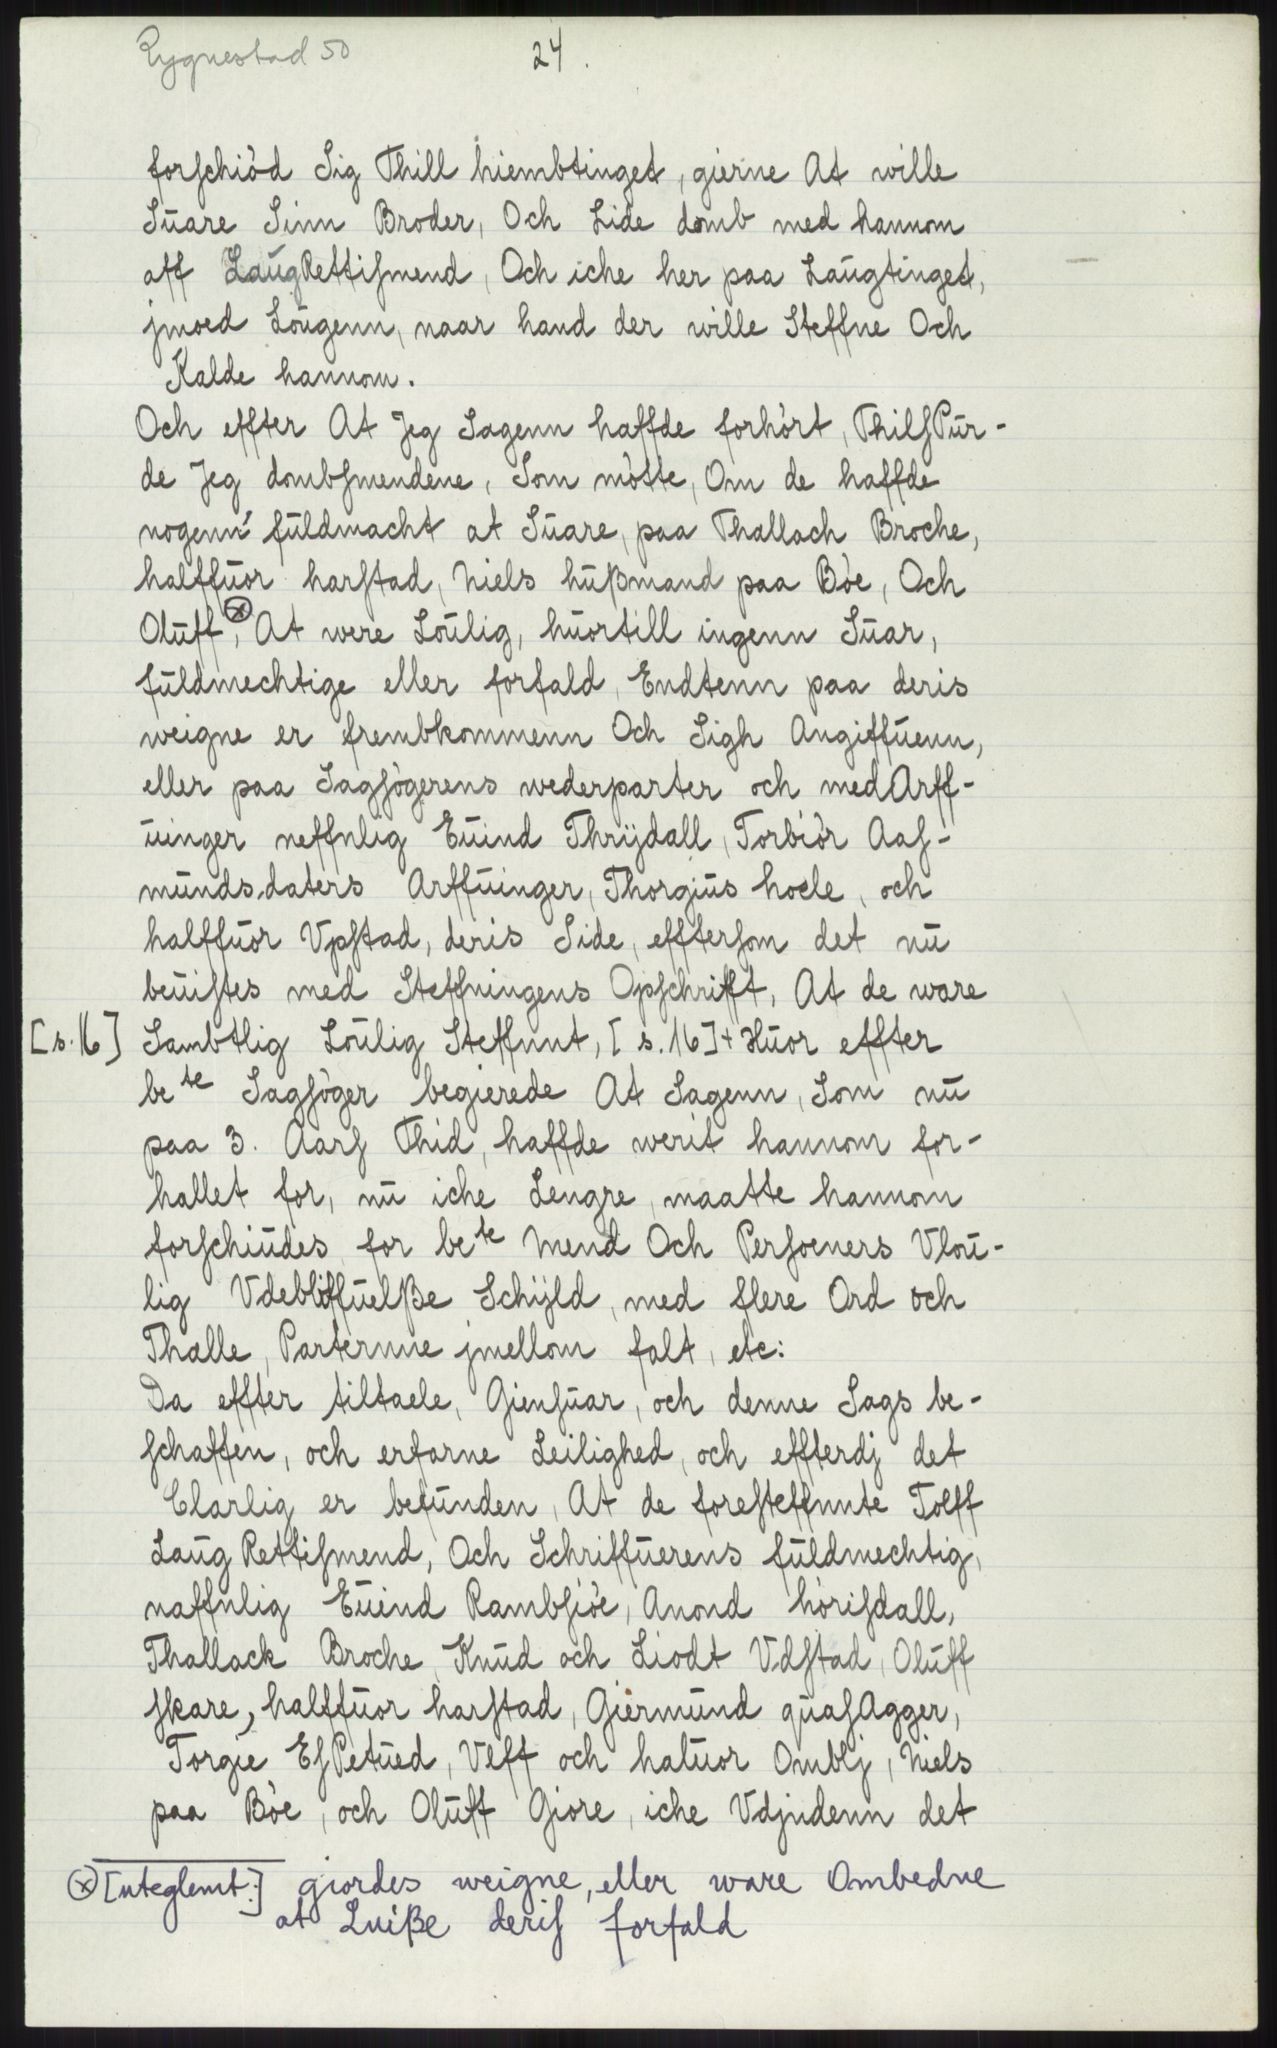 Rygnestad 50
24.
forschiöd Sig Thill hiembtinget, gierne At wille
Suare Sinn Broder, Och Lide domb med hannom
aff LaugRettismend, Och iche her paa Laugtinget,
jmoed Lougenn, naar hand der wille Steffne Och
Kalde hannom.
Och effter At Jeg Sagenn haffde forhört, ThilsPür-
de Jeg dombsmendene, Som mötte, Om de haffde
nogenn fuldmacht at Suare, paa Thallach Broche,
halffuor harstad, Niels hüßmand paa Böe, Och
Oluff,ⓧ At were Loulig, huortill ingenn Suar,
fuldmechtige eller forfald, Endtenn paa deris
weigne er frembkommenn Och Sigh Angiffuenn,
eller paa Sagsögerens wederparter och medArff-
uinger neffnlig Euind Thrÿdall, Torbiör Aas-
mundsdaters Arffuinger, Thorgius hoele, och
halffuor Vpstad, deris Side, efftersom det nu
beuistes med Steffningens Opschrifft, At de ware
[s.16] Sambtlig Loulig Steffnnt, [s.16]+ Huor effter
bete Sagsöger begierede At Sagenn, Som nu
paa 3. Aars Thid, haffde werit hannom for-
hallet for, nu iche Lengre, maatte hannom
forschiudes for bete Mend Och Persoeners Vlou-
lig Vdebliffuelße Schÿld, med flere Ord och
Thalle, Parternne jmellom falt, etc:
Da effter tiltaele, Giensuar, och denne Sags be-
schaffen, och erfarne Leilighed, och effterdj det
Clarlig er befunden, At de foresteffnnte Tolff
Laug Rettismend, Och Schriffuerens fuldmechtig,
naffnlig Euind Rambsiöe, Anond hörisdall,
Thallack Broche, Knud och Liodt Vdstad, Oluff
skare, halffuor harstad, Giermund quasAgger,
Torgie EsPetued, Vlff och haluor Omblj, Niels
paa Böe, och Oluff Giore, iche Vdjndenn det
ⓧ [uteglemt:] giordes weigne, eller ware Ombedne
at Luiße deris forfald